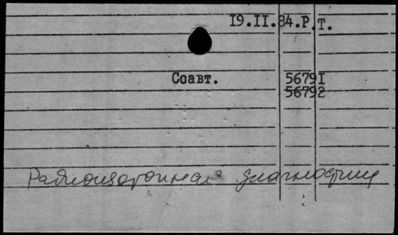 19.II.84.Р.Т.
Соавт. 56791
56792
Радиоизотопная диагностика